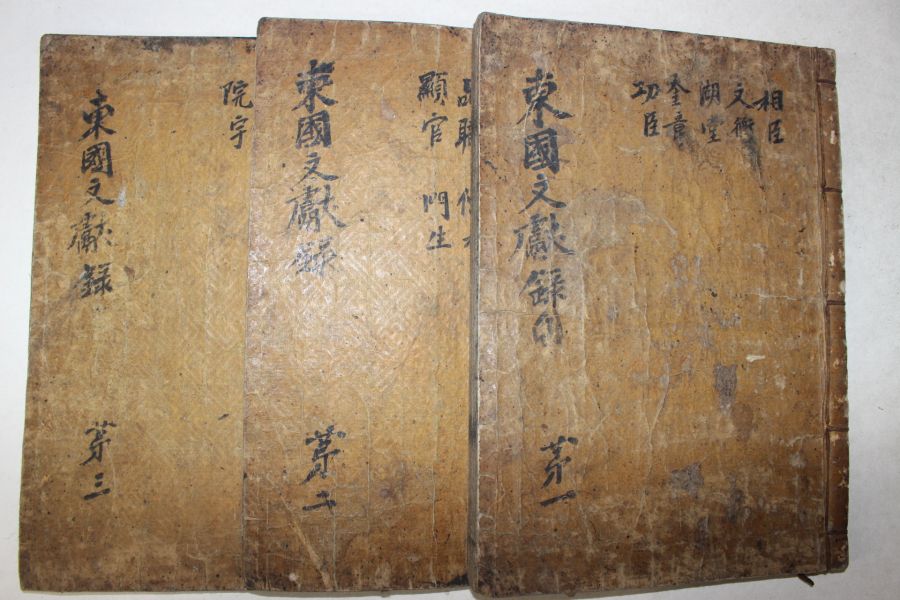 相臣
文衡
湖堂
奎章
功臣
東國文獻錄
第一
顯官 門生
東國文獻錄
第二
院宇
東國文獻錄
第三